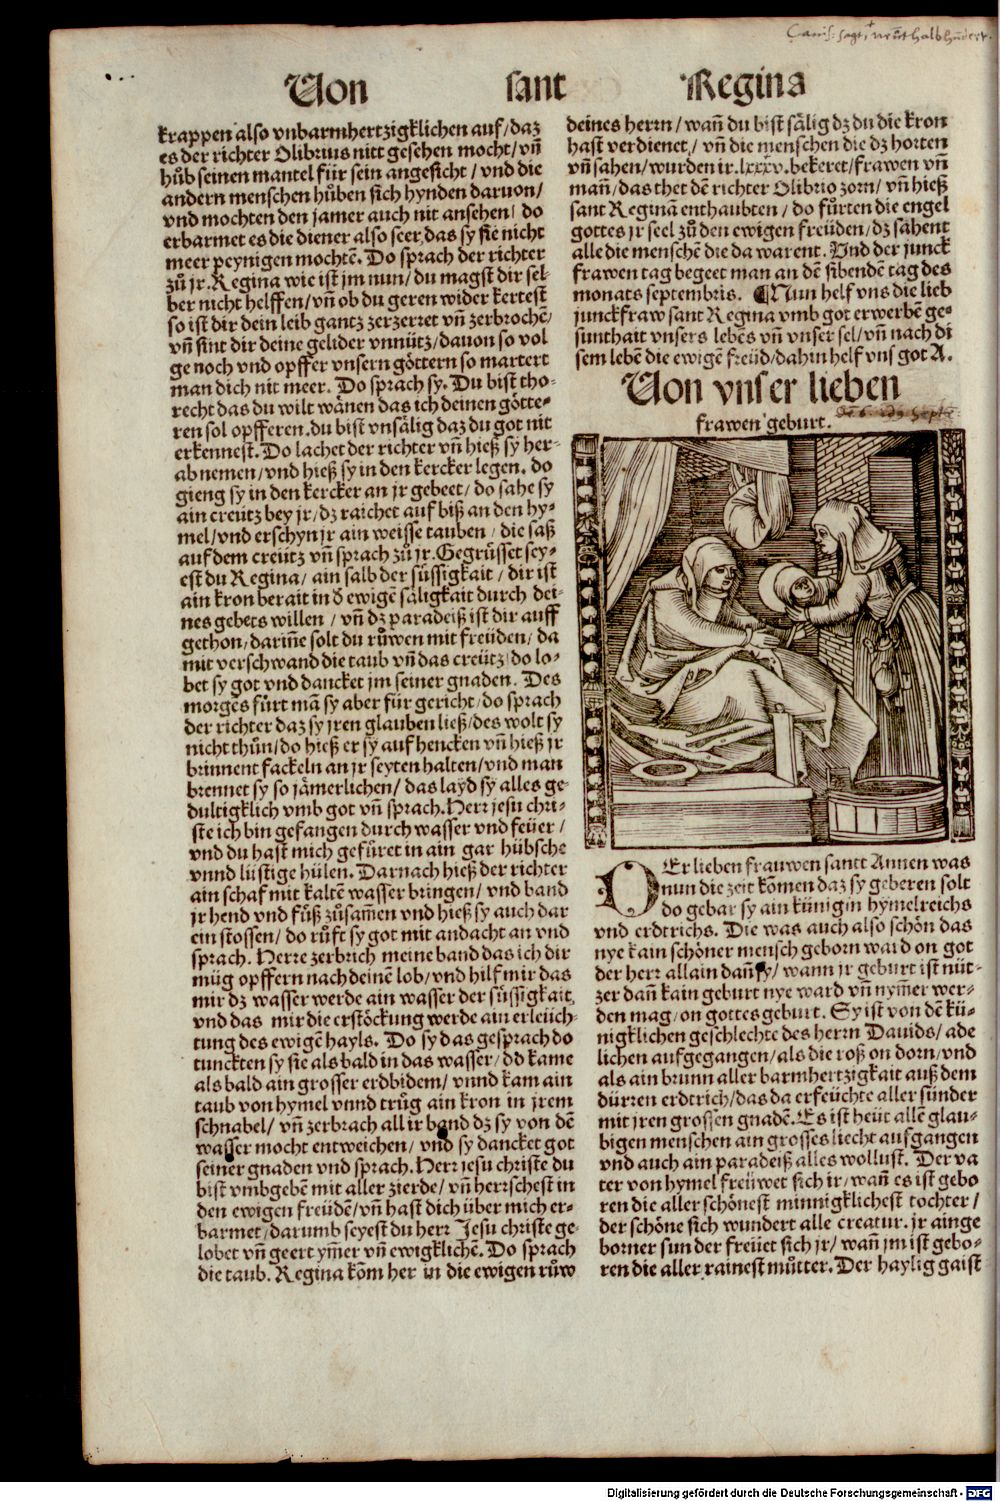 Von sant Regina
krappen also vnbarmhertzigklichen auf/daz
es der richter Olibrius nitt gesehen mocht/vñ
hůb seinen mantel für sein angesicht/vnd die
andern menschen hůben sich hynden daruon/
vnd mochten den jamer auch nit ansehen/ do
erbarmet es die diener also seer das sy sie nicht
meer peynigen mochtẽ. Do sprach der richter
zů jr. Regina wie ist jm nun/du magst dir sel-
ber nicht helffen/vñ ob du geren wider kertest
so ist dir dein leib gantz zerzerret vñ zerbrochẽ/
vñ sint dir deine gelider vnnütz/dauon so vol
ge noch vnd opffer vnsern göttern so martert
man dich nit meer. Do sprach sy. Du bist tho-
recht das du wilt wänen das ich deinen götte-
ren sol opfferen.du bist vnsälig daz du got nit
erkennest. Do lachet der richter vñ hieß sy her-
ab nemen/vnd hieß sy in den kercker legen. do
gieng sy in den kercker an jr gebeet/do sahe sy
ain creütz bey jr/dz raichet auf biß an den hy-
mel/vnd erschyn jr ain weisse tauben/die saß
auf dem creütz vñ sprach zů jr. Gegrüsset sey-
est du Regina/ain salb der süssigkait/dir ist
ain kron berait in ð ewigẽ säligkait durch dei-
nes gebets willen/vñ dz paradeiß ist dir auff
gethon/dariñe solt du růwen mit freüden/da
mit verschwand die taub vñ das creütz/do lo-
bet sy got vnd dancket jm seiner gnaden. Des
morges fůrt mã sy aber für gericht/do sprach
der richter daz sy jren glauben ließ/des wolt sy
nicht thůn/do hieß er sy auf hencken vñ hieß jr
brinnent fackeln an jr seyten halten/vnd man
brennet sy so jämerlichen/das layd sy alles ge-
dultigklich vmb got vñ sprach. Herr jesu chri-
ste ich bin gefangen durch wasser vnd feüer/
vnd du hast mich gefüret in ain gar hübsche
vnnd lüstige hülen. Darnach hieß der richter
ain schaf mit kaltẽ wasser bringen/vnd band
jr hend vnd füß zůsam̃en vnd hieß sy auch dar
ein stossen/do růft sy got mit andacht an vnd
sprach. Herre zerbrich meine band das ich dir
müg opffern nach deinẽ lob/vnd hilf mir das
mir dz wasser werde ain wasser der süssigkait,
vnd das mir die erstöckung werde ain erleüch-
tung des ewigẽ hayls. Do sy das gesprach do
tunckten sy sie als bald in das wasser/do kame
als bald ain grosser erdbidem/vnnd kam ain
taub von hymel vnnd trůg ain kron in jrem
schnabel/vñ zerbrach all ir band dz sy von dẽ
wasser mocht entweichen/vnd sy dancket got
seiner gnaden vnd sprach. Herr jesu christe du
bist vmbgebẽ mit aller zierde/vñ herrschest in
den ewigen freüdẽ/vñ hast dich über mich er-
barmet/darumb seyest du herr Jesu christe ge-
lobet vñ geert ym̃er vñ ewigklichẽ. Do sprach
die taub. Regina kõm her in die ewigen růw
deines herrn/wañ du bist sälig dz du die kron
hast verdienet/vñ die menschen die dz horten
vñ sahen/wurden ir.lxxxv.bekeret/frawen vñ
mañ/das thet dẽ richter Olibrio zorn/vñ hieß
sant Reginã enthaubten/do fůrten die engel
gottes jr seel zů den ewigen freüden/dz sahent
alle die menschẽ die da warent. Vnd der junck
frawen tag begeet man an dẽ sibendẽ tag des
monats septembris. ¶Nun helf vns die lieb
junckfraw sant Regina vmb got erwerbẽ ge-
sunthait vnsers lebẽs vñ vnser sel/vñ nach di
sem lebẽ die ewigẽ freüd/dahin helf vns got A.
Von vnser lieben
frawen geburt.
DEr lieben frauwen sanct Annen was
nun die zeit kõmen daz sy geberen solt
do gebar sy ain künigin hymelreichs
vnd erdtrichs. Die was auch also schön das
nye kain schöner mensch geborn ward on got
der herr allain dañ sy/wann jr geburt ist nüt-
zer dañ kain geburt nye ward vñ nym̃er wer-
den mag/on gottes geburt. Sy ist von dẽ kü-
nigklichen geschlechte des herrn Dauids/ade
lichen aufgegangen/als die roß on dorn/vnd
als ain brunn aller barmhertzigkait auß dem
dürren erdtrich/das da erfeüchte aller sünder
mit jren grossen gnadẽ. Es ist heüt allẽ glau-
bigen menschen ain grosses liecht ausgangen
vnd auch ain paradeiß alles wollust. Der va
ter von hymel freüwet sich ir/wañ es ist gebo
ren die aller schönest minnigklichest tochter/
der schöne sich wundert alle creatur. jr ainge
borner sun der freüet sich jr/wañ jm ist gebo-
ren die aller rainest můtter. Der haylig gaist
Digitalisierung gefördert durch die Deutsche Forschungsgemeinschaft - DFG